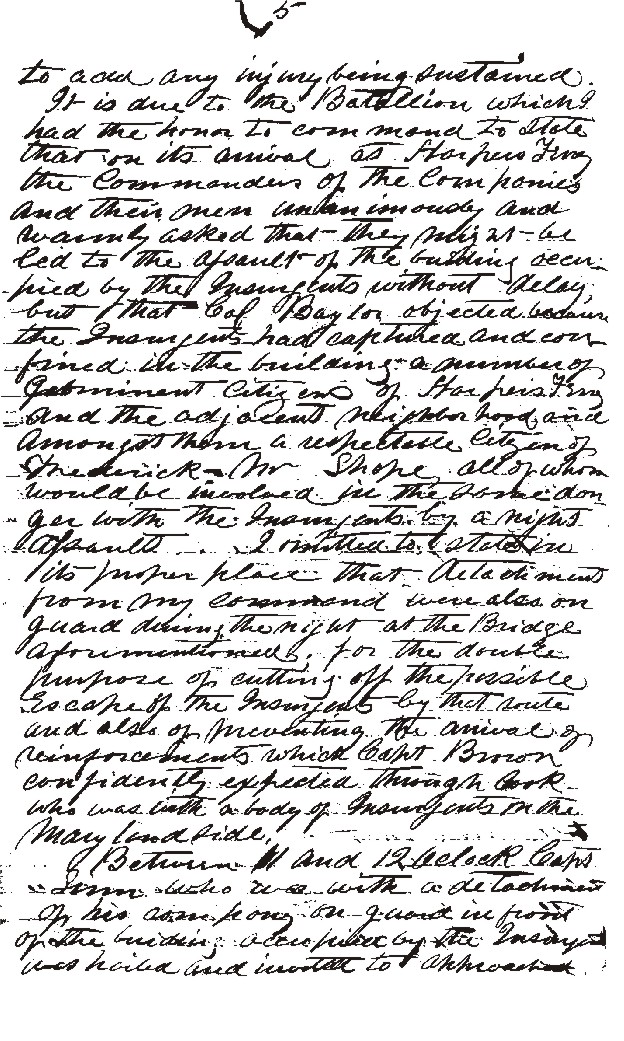 5
to add any injury being sustained.
It is due to the Batallion which I
had the honor to command to state
that on its arival at Harpers Ferry
the Commanders of the Companies
and their men unanimously and
warmly asked that they might be
led to the assault of the building occu-
pied by the Insurgents without delay,
but that Col Baylor objected because
the Insurgents had captured and con-
fined in the building a number of
prominent Citizens of Harpers Ferry
and the adjacent neighborhood, and
amongst them a respectable Citizen of
Frederick Mr Shope all of whom
would be involved in the same dan
ger with the Insurgents by a night
assault. I omitted to state in
its proper place that detachments
from my command were also on
guard during the night at the Bridge
aforementioned, for the double
purpose of cutting off the possible
Escape of the Insurgents by that route
and also of preventing the arival of
reinforcements which Capt Brown
confidently expected through Cook
who was with a body of Insurgents on the
Maryland side.
Between 11 and 12 Oclock Capt
Sinn who was with a detachment
of his company on guard in front
of the building occupied by the
was hailed and invited to approach